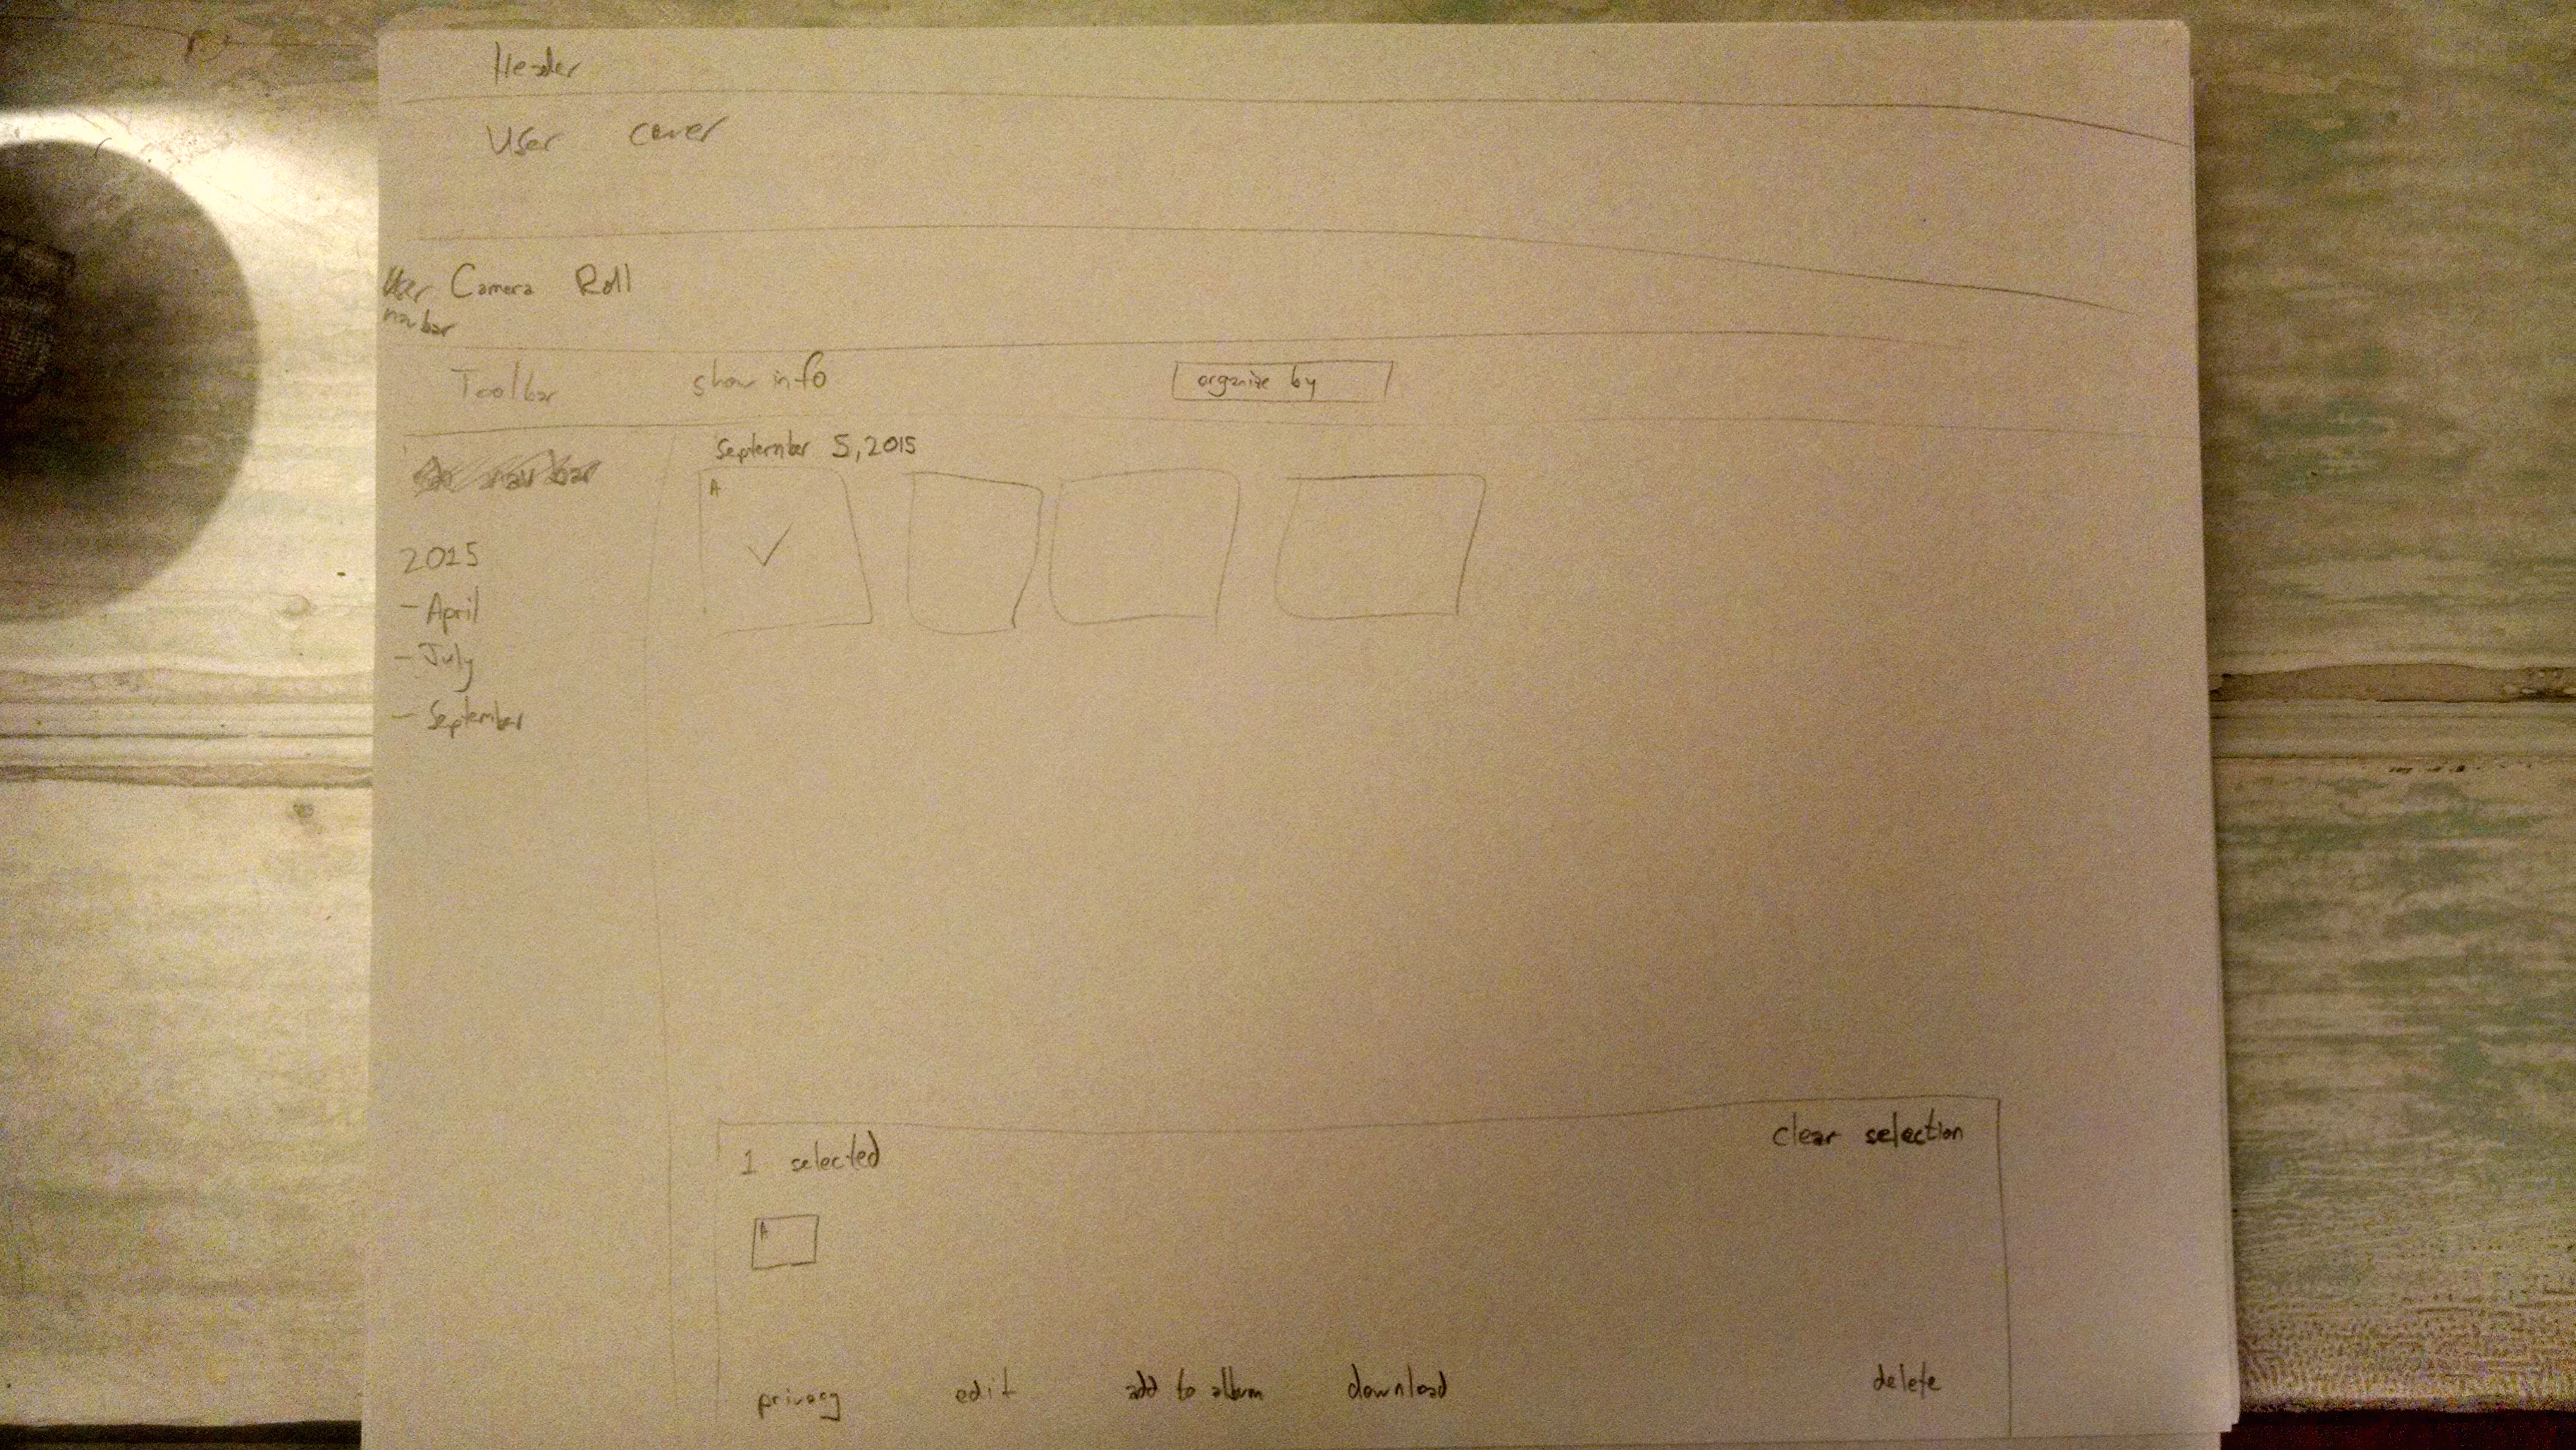 Header
User cover
User Camera Roll
nav bar
Toolbar show info organize by
September 5, 2015
nav bar
A
2015
- April
- July
- September
1 selected clear selection
A
privacy edit add to album download delete